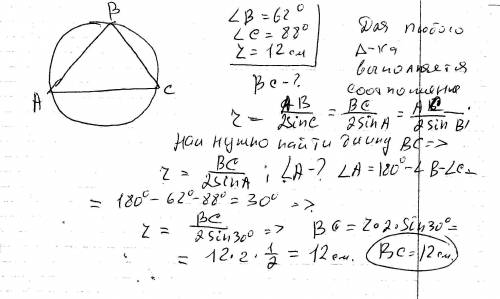 B
A
C
∠B = 62°
∠C = 88°
r = 12 см
BC - ?
Для любого
Δ-ка
выполняется
соотношение
r = AB/2sinC = BC/2sinA = AC/2sinB;
Нам нужно найти длину BC =>
r = BC/2sinA ; ∠A - ? ∠A = 180° - ∠B - ∠C =
= 180° - 62° - 88° = 30° =>
r = BC/2sin30° => BC = r·2·sin30° =
= 12·2·1/2 = 12 см. BC = 12 см.